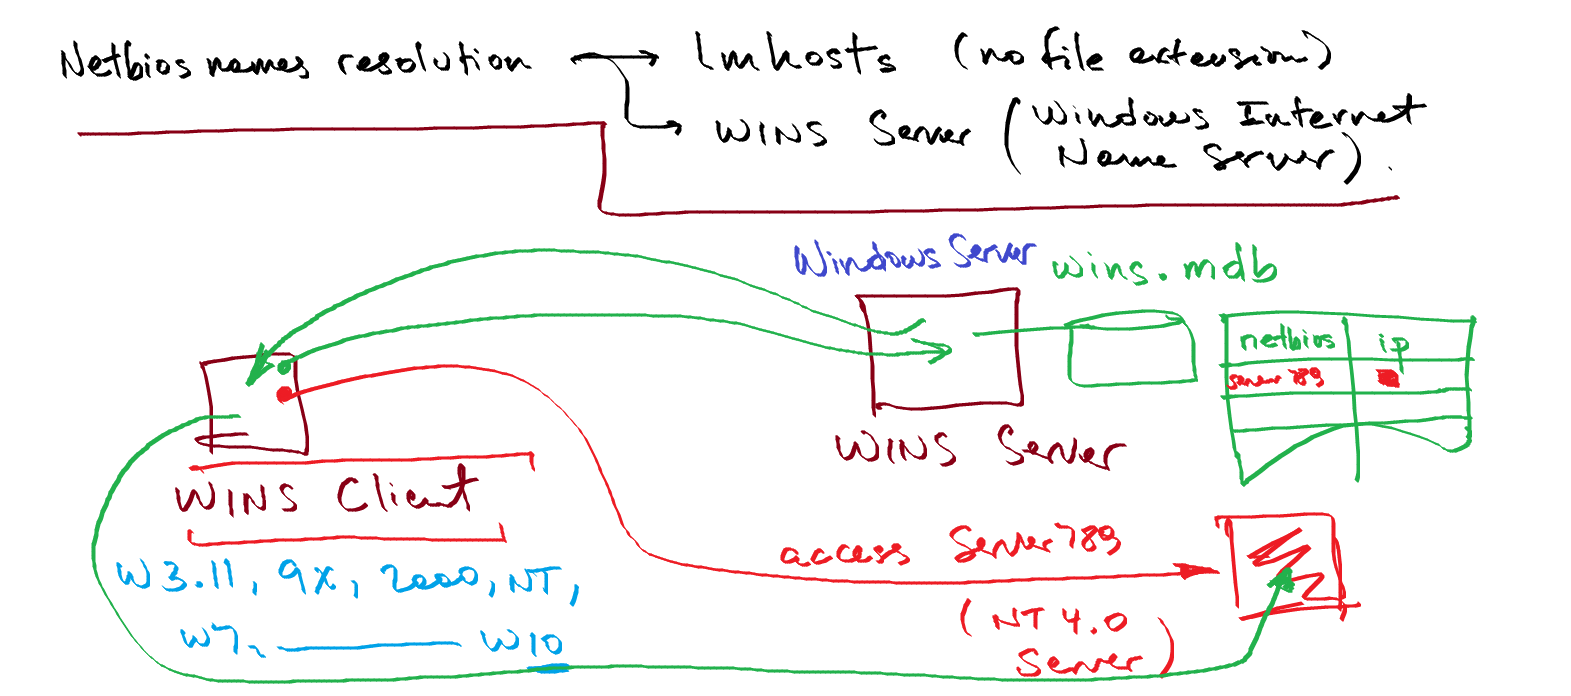 Netbios names resolution → lmhosts (no file extension)
→ WINS Server (Windows Internet
Name Server).
Windows Server
wins.mdb
netbios ip
server 789
WINS Server
WINS Client
W3.11, 9x, 2000, NT,
W7, ——— W10
access Server789
(NT 4.0
Server)